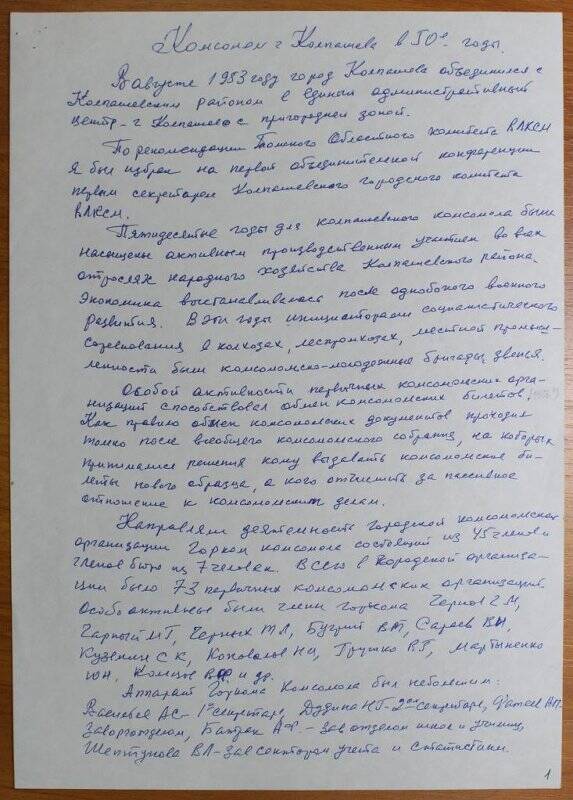 Комсомол г Колпашева в 50е годы.
В августе 1953 году город Колпашева объединился с
Колпашевским районом в единый административный
центр - г Колпашево с пригородной зоной.
По рекомендации Томского Областного комитета ВЛКСМ
я был избран на первой объединительной конференции
первым секретарем Колпашевского городского комитета
ВЛКСМ.
Пятидесятые годы для колпашевского комсомола были
насыщены активным производственным участием во всех
отрослях народного хозяйства Колпашевского района.
Экономика выстанавливалась после однобокого военного
развития. В эти годы инициаторами социалистического
соревнования в колхозах, леспромхозах, местной промыш-
ленности были комсомольско-молодежные бригады, звенья.
Особой активности первичных комсомольских орга-
низаций способствовал обмен комсомольских билетов.
Как правило обмен комсомольских документов проходил
только после всеобщего комсомольского собрания, на которых
принимался решения кому выдавать комсомольские би-
леты нового образца, а кого отчислить за пассивное
отношение к комсомольским делам.
Направлял деятельность городской комсомольской
организации Горком комсомола состоящий из 45 членов и
членов бюро из 7 человек. Всего в городской организа-
ции было 73 первичных комсомольских организаций.
Особо активные были члены горкома Чернов Г М,
Гарный МГ, Черных ТЛ, Бугрий ВМ, Сараев ВН,
Кузенкин С К, Коновалов НИ, Трушко ВГ, Мартыненко
ЮН, ВФ. и др.
Аппарат Горкома Комсомола был небольшим:
Васильев АС - 1й секретарь, Дудина НГ - 2ой секретарь, Фатеев АП.
Заворготделом, АФ. - зав отделом школ и училищ,
Шептунова ВЛ - зав сектором учета и статистики.
1